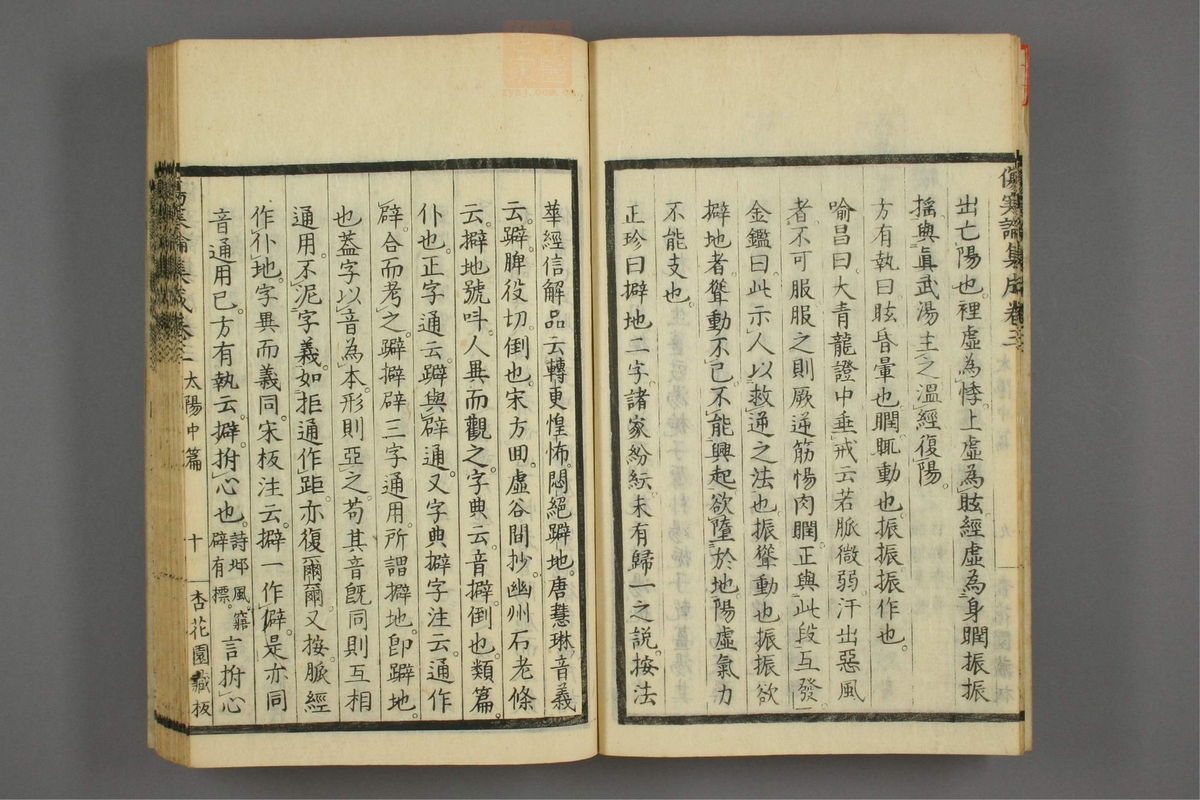 傷寒論集成卷三
出亡陽也。裡虛為悸。上虛為眩。經虛為身瞤振振
搖。與眞武湯主之。溫經復陽。
方有執曰眩昏暈也。瞤瞤動也。振振。振作也。
喻昌曰。大青龍證中垂戒云若脈微弱。汗出惡風
者。不可服服之則厥逆筋惕肉瞤。正與此段互發
金鑑曰。此示人以救逆之法也。振聳動也振振欲
擗地者。聳動不已。不能興起欲墮於地。陽虛氣力
不能支也。
正珍曰擗地二字。諸家紛紜。未有歸一之說。按法
華經信解品云轉更惶怖。悶絕躃地。唐慧琳音義
云。躃。脾役切。倒也。宋方回虛谷閒抄。幽州石老條
云。擗地號呌。人異而觀之。字典云。音擗。倒也。類篇。
仆也。正字通云。躃與躄通。又字典擗字注云。通作
辟。合而考之。躃擗辟三字通用。所謂擗地。卽躃地。
也蓋字以音為本。形則亞之。苟其音旣同則互相
通用。不泥字義。如拒通作距。亦復爾爾。又按。脈經
作仆地。字異而義同。宋板注云。擗一作僻。是亦同
音通用已。方有執云。擗。拊心也。詩邶風。寤辟有摽。言拊心
太陽中篇
十
杏花園藏板